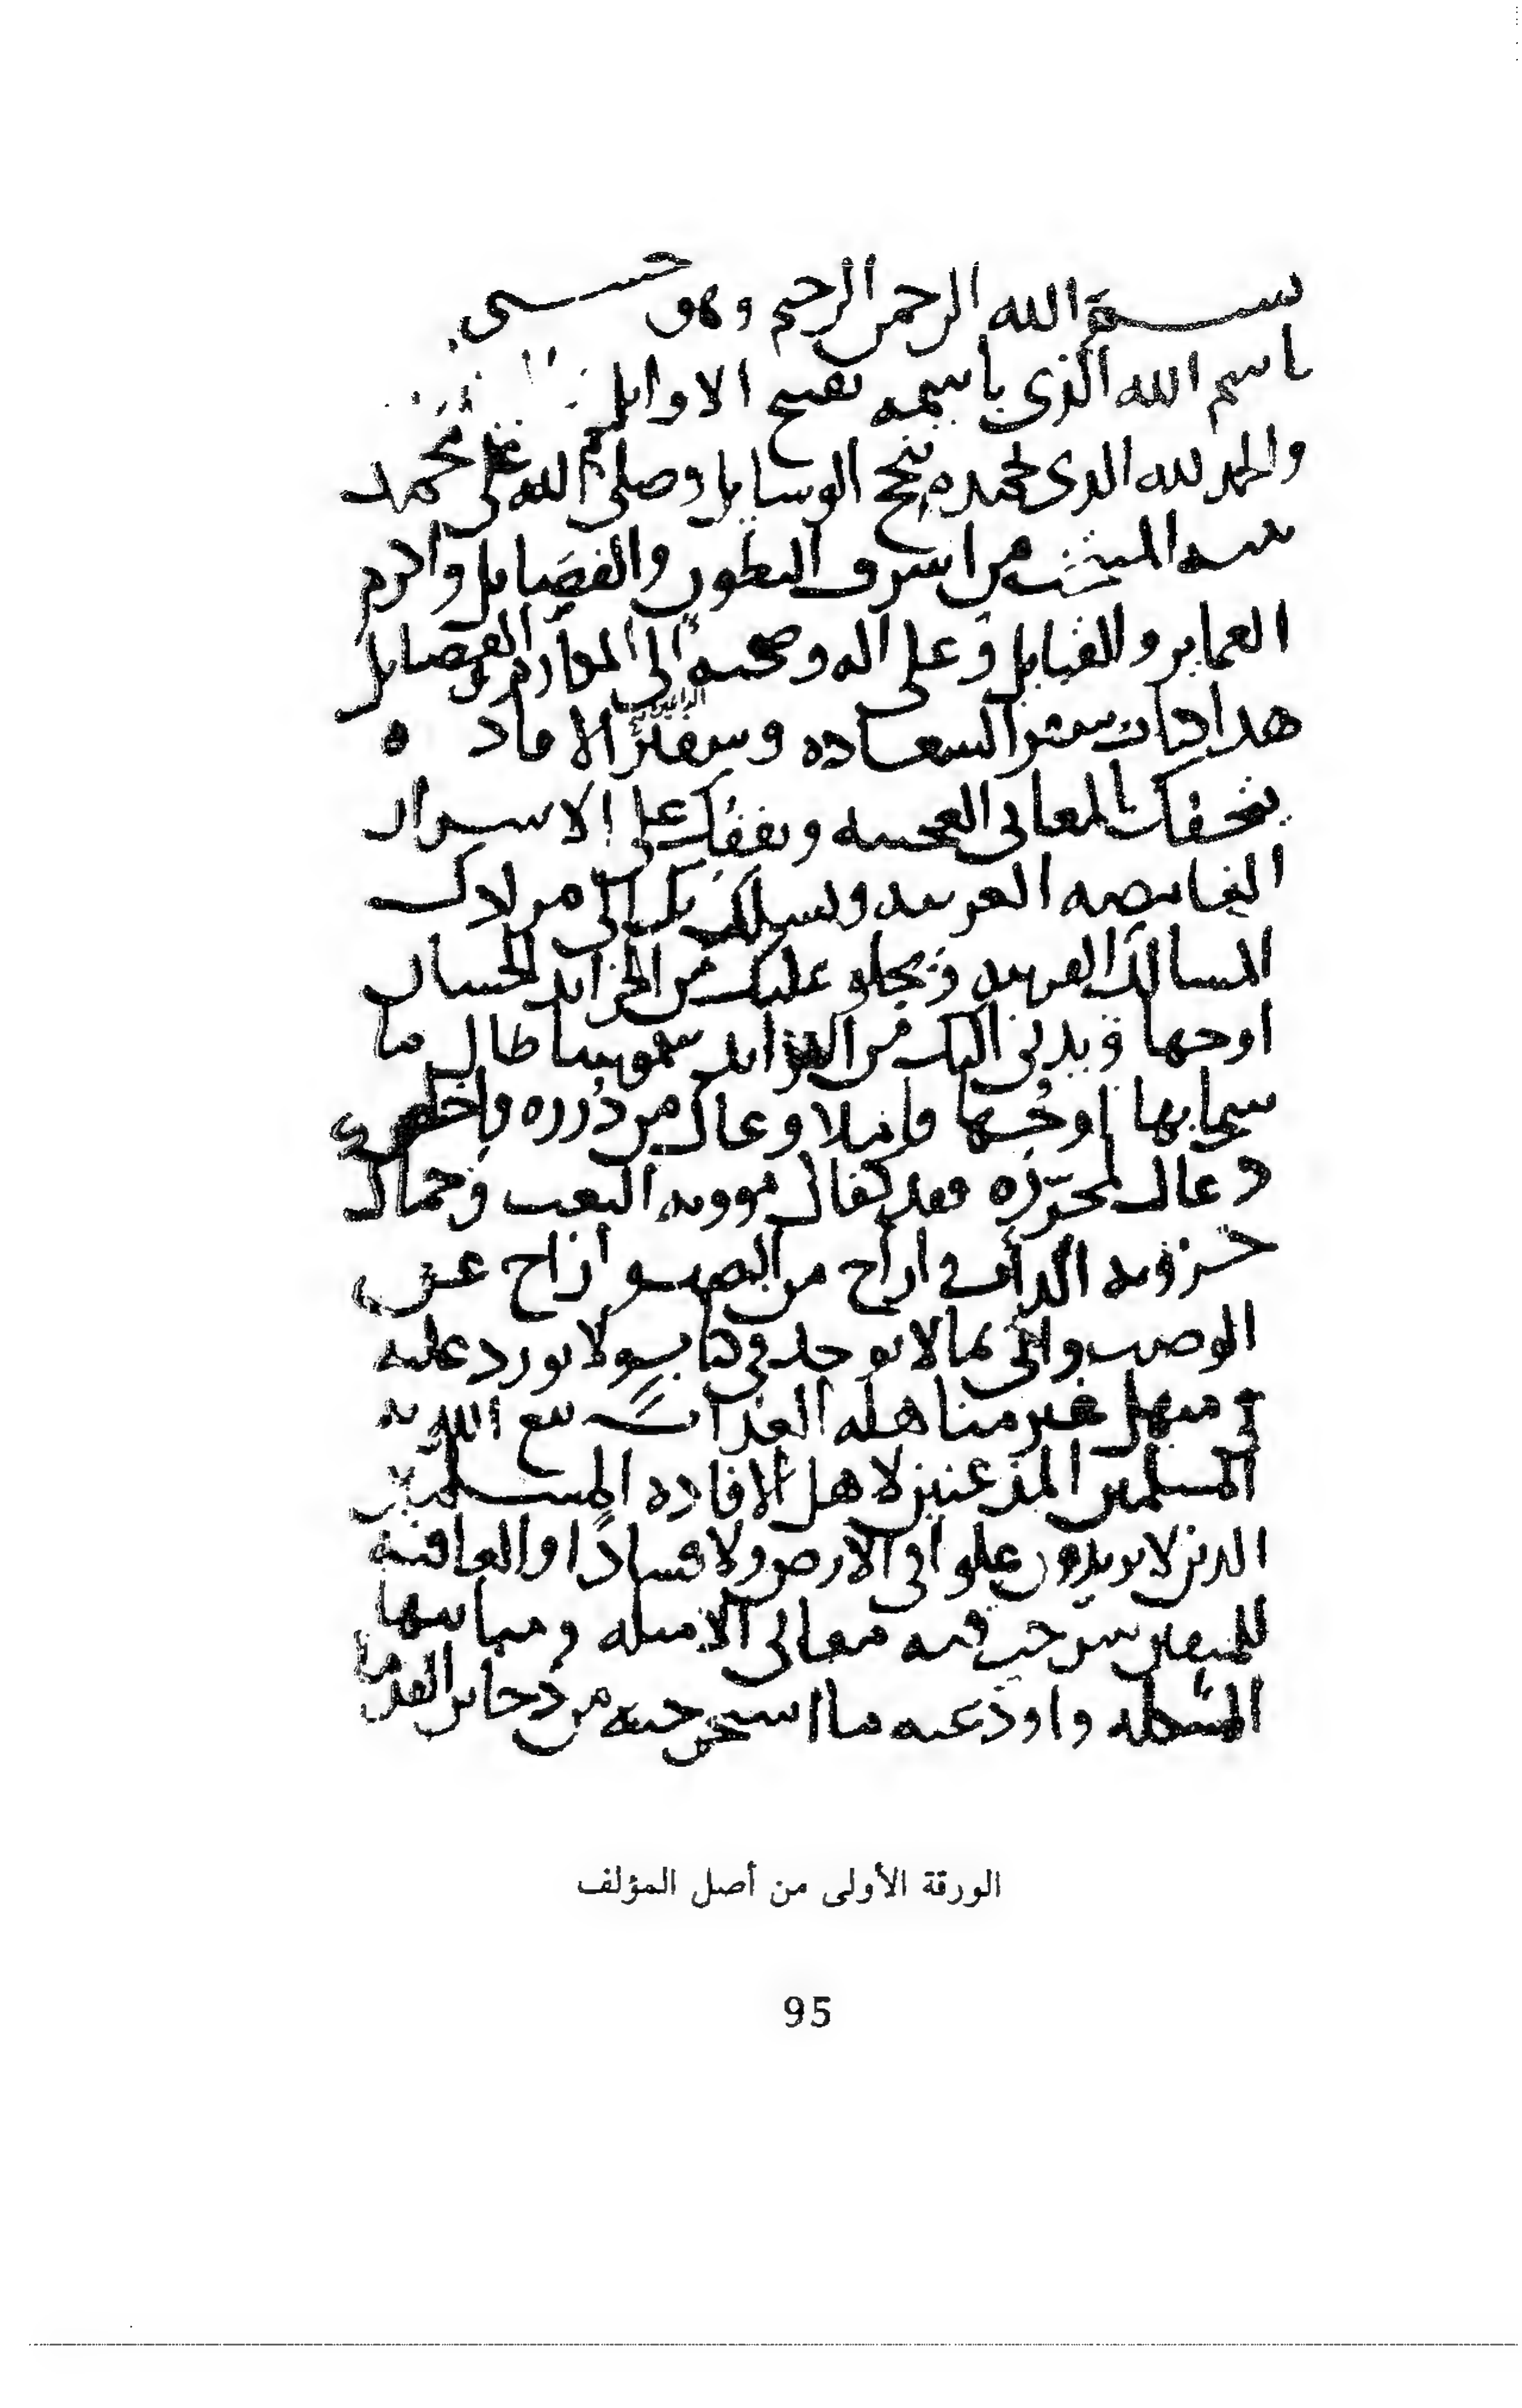 بسم الله الرحمن الرحيم وهو حسبي
باسم الله الذي باسمه تفتتح الاوايل
والحمد لله الذي بحمده تنجح الوسايل وصلى الله على محمد
من اشرف البطون والفصايل واكرم
العماير والقبايل وعلى اله وصحبه اولي المكارم والفضايل
هذا كتاب سفر السعاده وسفير الافاده
يتحفك بالمعاني العجيبه ويقفك على الاسرار
الغامضه الغريبه ويسلك بك الى مرادك
المسالك القريبه ويجلو عليك من الخرايد الحسان
اوجهها ويدني اليك من الفرايد شموسا طال ما
سما بها اوجها فاملا وعاك من درره
دعاك لمحرزه فقد كفاك موونه التعب وحماك
حزونه الداب اراح من النصب وازاح عن
الوصب واتى بما لا يوجد في كتاب ولا يورد عليه
في منهل غير مناهله العذاب نفع الله به
المسلمين المذعنين لاهل الافاده المسلمين
الذين لا يريدون علوا في الارض ولا فسادا والعاقبه
للمتقين شرحت فيه معاني الامثله ومبانيها
المشكله واودعته ما استخرجته من ذخاير القدما
الورقة الأولى من أصل المؤلف
95